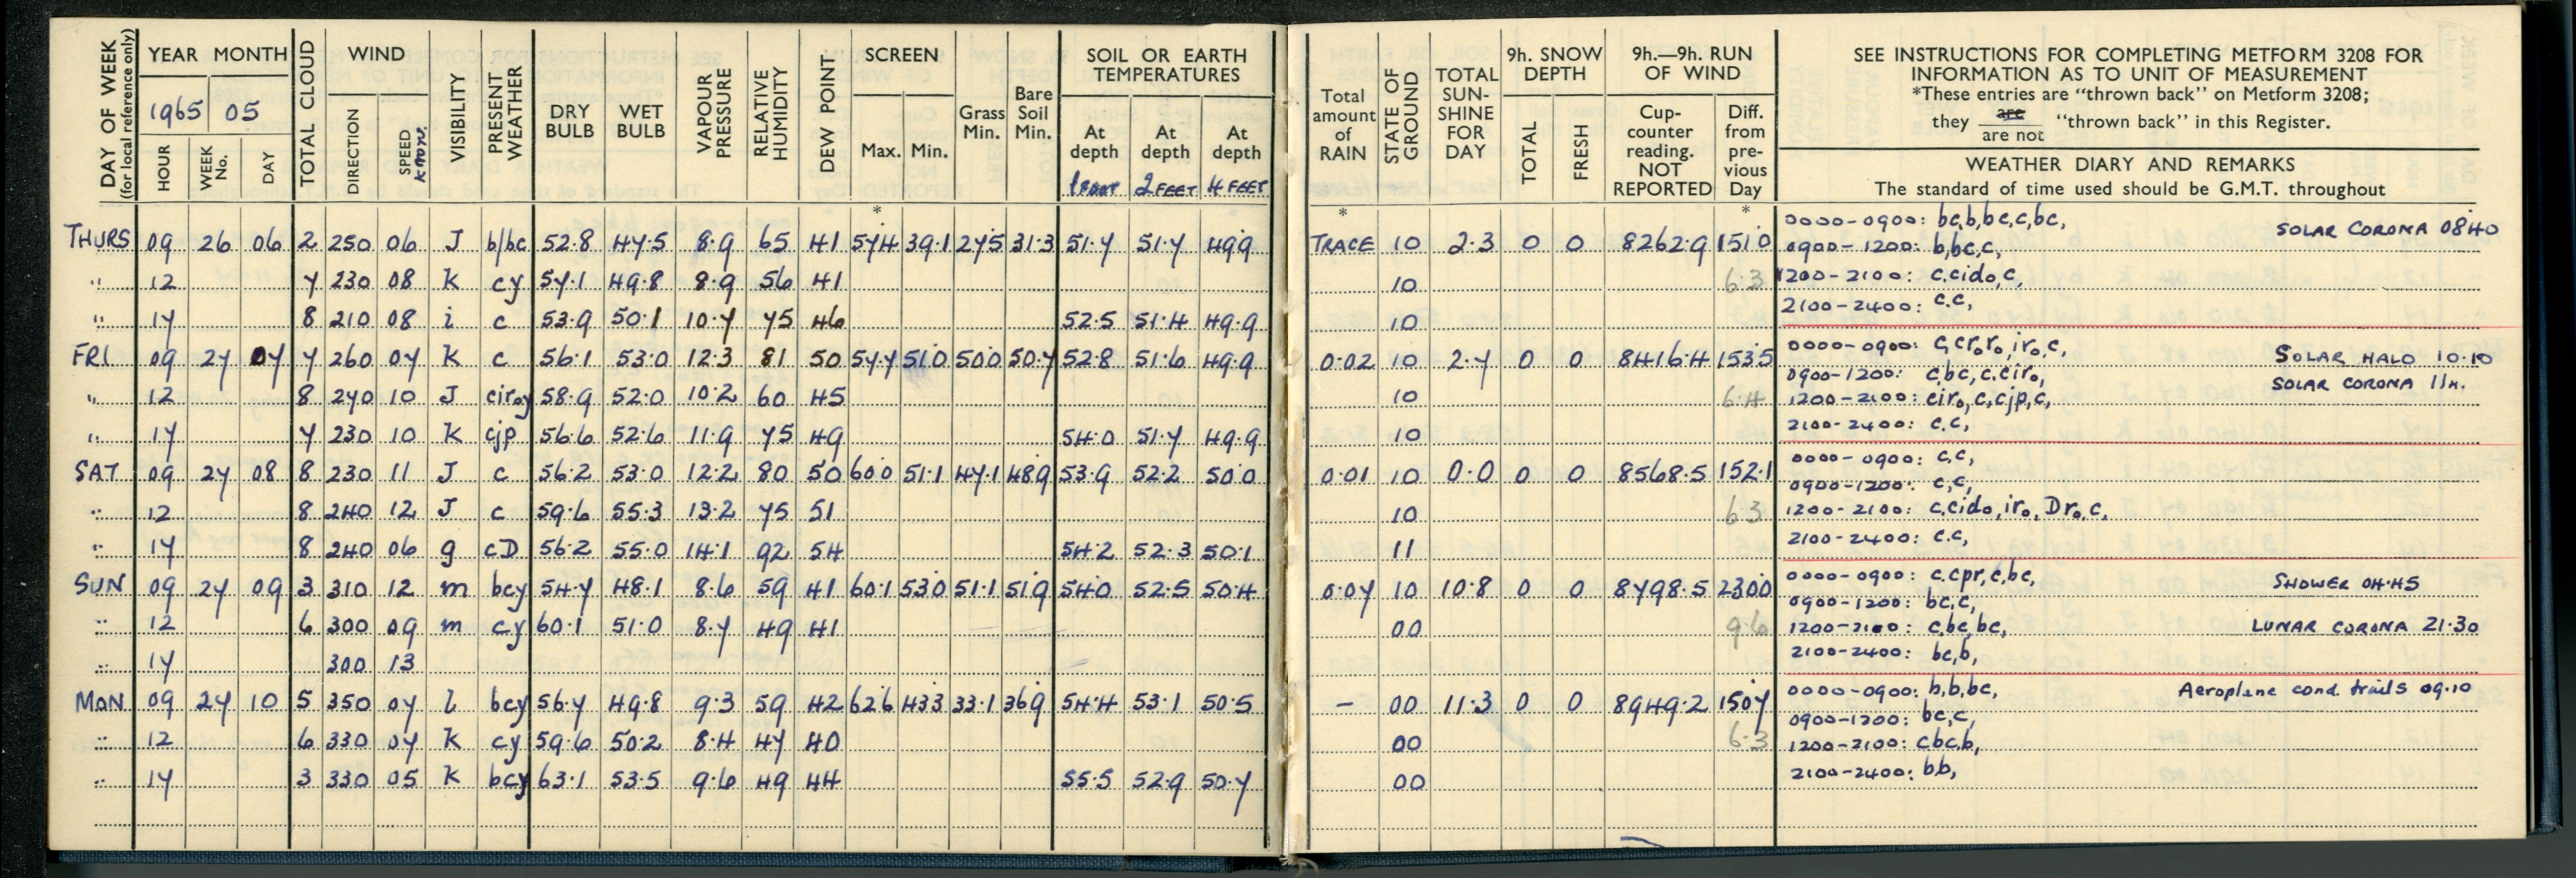 DAY OF WEEK
(for local reference only)
YEAR MONTH
1965 05
HOUR
WEEK No.
DAY
TOTAL CLOUD
WIND
DIRECTION
SPEED
KNOTS
VISIBILITY
PRESENT WEATHER
DRY BULB
WET BULB
VAPOUR PRESSURE
RELATIVE HUMIDITY
DEW POINT
SCREEN
Max. Min.
Grass Min.
Bare Soil Min.
SOIL OR EARTH TEMPERATURES
At depth At depth At depth
1 FOOT 2 FEET 4 FEET
*
THURS 09 26 06 2 250 06 J b/bc 52.8 47.5 8.9 65 41 57.4 39.1 27.5 31.3 51.7 51.7 49.9
" 12 7 230 08 K cy 57.1 49.8 8.9 56 41
" 17 8 210 08 i c 53.9 50.1 10.7 75 46 52.5 51.4 49.9
FRI 09 27 07 7 260 07 K c 56.1 53.0 12.3 81 50 57.7 51.0 50.0 50.7 52.8 51.6 49.9
" 12 8 270 10 J ciroy 58.9 52.0 10.2 60 45
" 17 7 230 10 K cjp 56.6 52.6 11.9 75 49 54.0 51.7 49.9
SAT 09 27 08 8 230 11 J c 56.2 53.0 12.2 80 50 60.0 51.1 47.1 48.9 53.9 52.2 50.0
" 12 8 240 12 J c 59.6 55.3 13.2 75 51
" 17 8 240 06 g cD 56.2 55.0 14.1 92 54 54.2 52.3 50.1
SUN 09 27 09 3 310 12 m bcy 54.7 48.1 8.6 59 41 60.1 53.0 51.1 51.9 54.0 52.5 50.4
" 12 6 300 09 m cy 60.1 51.0 8.7 49 41
" 17 300 13
MON 09 27 10 5 350 07 l bcy 56.7 49.8 9.3 59 42 62.6 43.3 33.1 36.9 54.4 53.1 50.5
" 12 6 330 07 K cy 59.6 50.2 8.4 47 40
" 17 3 330 05 K bcy 63.1 53.5 9.6 49 44 55.5 52.9 50.7
Total amount of RAIN
STATE OF GROUND
TOTAL SUN-SHINE FOR DAY
9h. SNOW DEPTH
TOTAL FRESH
9h.—9h. RUN OF WIND
Cup-counter reading. NOT REPORTED
Diff. from pre-vious Day
SEE INSTRUCTIONS FOR COMPLETING METFORM 3208 FOR
INFORMATION AS TO UNIT OF MEASUREMENT
*These entries are "thrown back" on Metform 3208;
they are / are not "thrown back" in this Register.
WEATHER DIARY AND REMARKS
The standard of time used should be G.M.T. throughout
* *
0000-0900: bc,b,bc,c,bc, SOLAR CORONA 0840
TRACE 10 2.3 0 0 8262.9 151.0 0900-1200: b,bc,c,
10 6.3 1200-2100: c.cido,c,
10 2100-2400: c.c,
0000-0900: c,cro.ro,iro,c, SOLAR HALO 10.10
0.02 10 2.7 0 0 8416.4 153.5 0900-1200: c,bc,c.ciro, SOLAR CORONA 11H.
10 6.4 1200-2100: ciro,c,cjp,c,
10 2100-2400: c.c,
0000-0900: c,c,
0.01 10 0.0 0 0 8568.5 152.1 0900-1200: c,c,
10 6.3 1200-2100: c.cido,iro,Dro,c,
11 2100-2400: c.c,
0000-0900: c.cpr,c,bc, SHOWER 04.45
0.07 10 10.8 0 0 8798.5 230.0 0900-1200: bc,c,
00 9.6 1200-2100: c,bc,bc, LUNAR CORONA 21.30
2100-2400: bc,b,
0000-0900: b,b,bc, Aeroplane cond. trails 09.10
– 00 11.3 0 0 8949.2 150.7 0900-1200: bc,c,
00 6.3 1200-2100: cbc,b,
00 2100-2400: b.b,